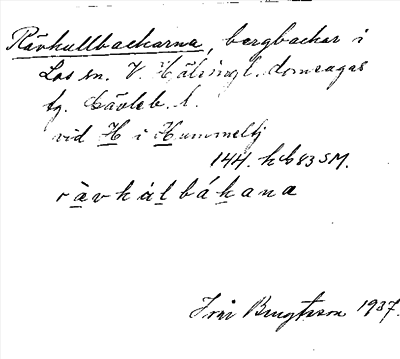 Rävkullbackarna, bergbackar i
Los sn. V. Hälsingl. domsagas
tg. Gävleb. l.
vid H i Hummeltj
14H. hb 83 SM.
ràvkálbákana
Bengtsson 1937.